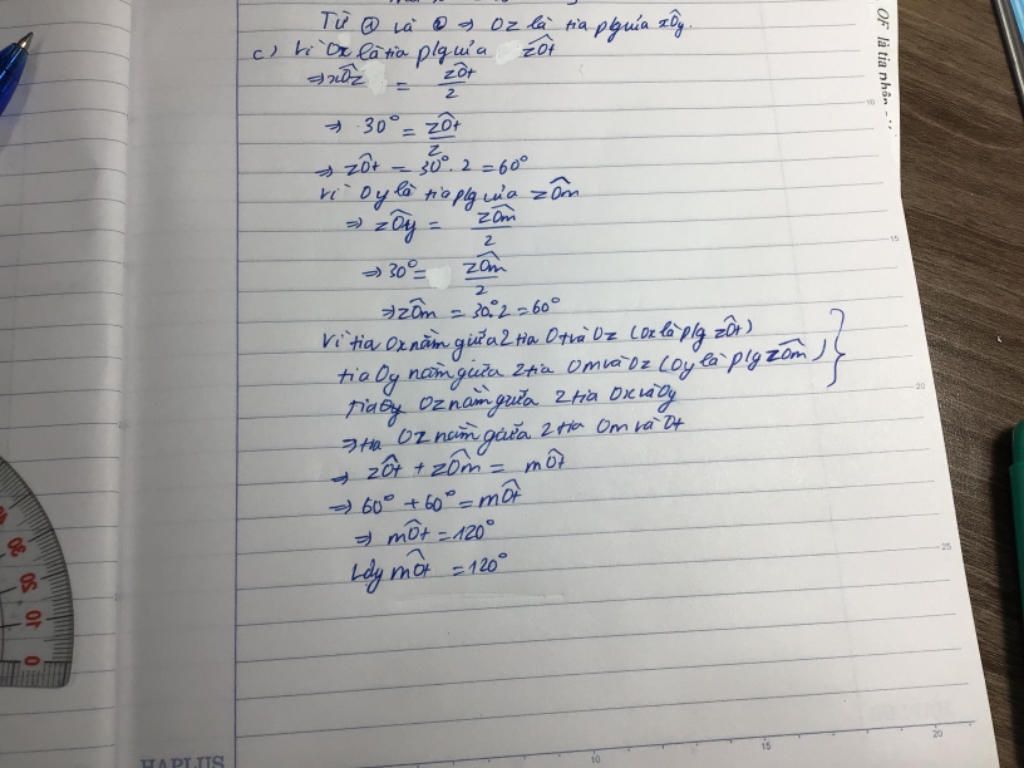 Từ ① và ② ⇒ Oz là tia p/g của xÔy.
c) Vì Ox là tia p/g của zÔt
⇒ xÔz = zÔt/2
⇒ 30° = zÔt/2
⇒ zÔt = 30°.2 = 60°
Vì Oy là tia p/g của zÔm
⇒ zÔy = zÔm/2
⇒ 30° = zÔm/2
⇒ zÔm = 30°.2 = 60°
Vì tia Ox nằm giữa 2 tia Ot và Oz (Ox là p/g zÔt)
tia Oy nằm giữa 2 tia Om và Oz (Oy là p/g zÔm)
tia Oz nằm giữa 2 tia Ox và Oy
⇒ tia Oz nằm giữa 2 tia Om và Ot
⇒ zÔt + zÔm = mÔt
⇒ 60° + 60° = mÔt
⇒ mÔt = 120°
Vậy mÔt = 120°
OF là tia phân
HAPLUS
10
15
20
25
10
15
20
0
10
20
30